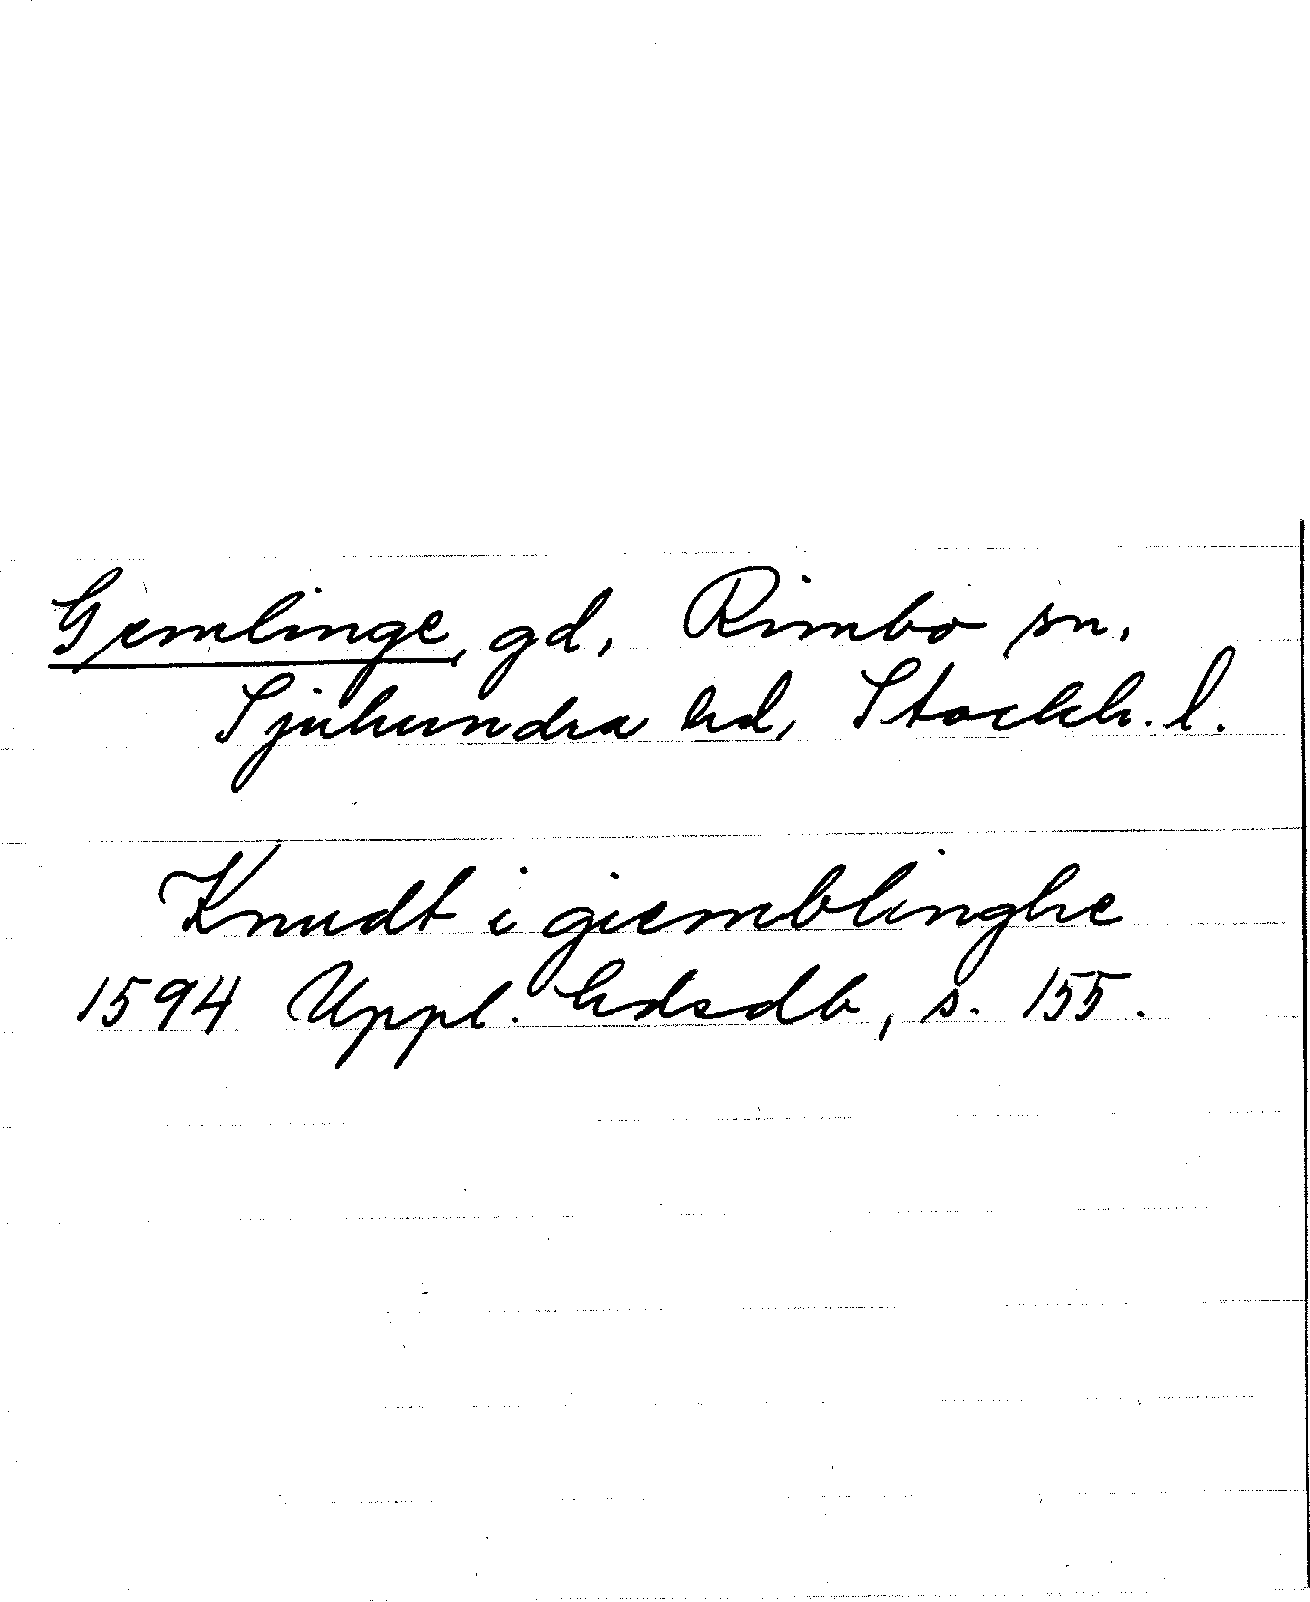 Gemlinge, gd, Rimbo sn,
Sjuhundra hd, Stockh. l.
Knudt i giemblinghe
1594 Uppl. hdsdb, s. 155.